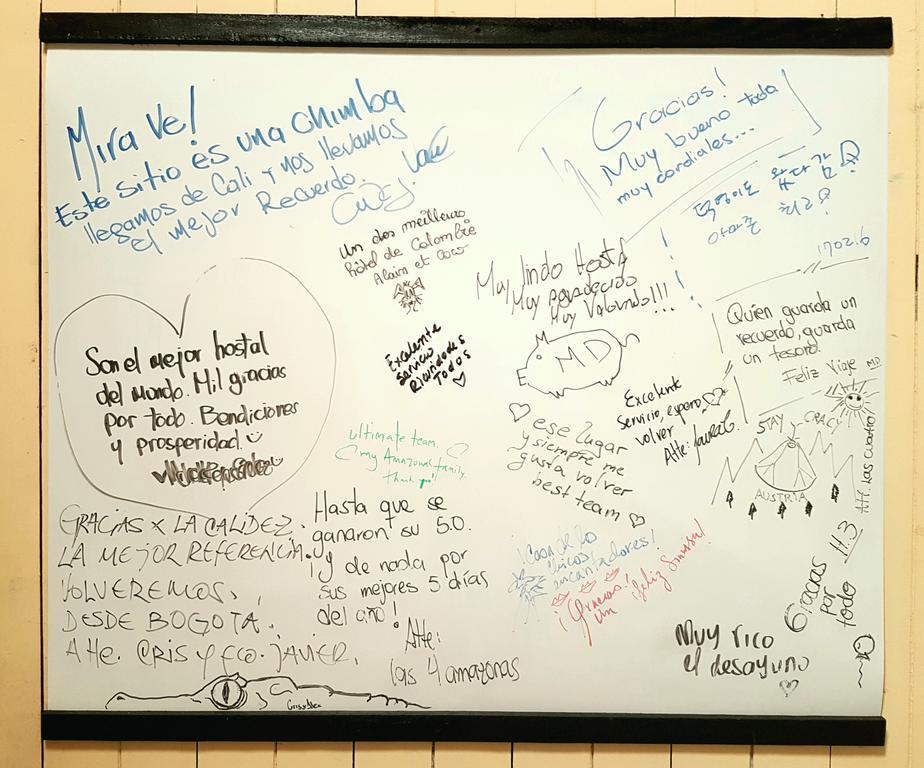 Mira Ve!
Este sitio es una chimba
llegamos de Cali y nos llevamos
el mejor Recuerdo.
Gracias!
Muy bueno todo
muy cordiales...
170216
un des meilleurs
hôtel de Colombie
Alain et Coco
Muy lindo Hostal
Muy agradecido
Muy Valorado!!!
MD
Quien guarda un
recuerdo, guarda
un tesoro.
Feliz Viaje MD
Son el mejor hostal
del mundo. Mil gracias
por todo. Bendiciones
y prosperidad.
Excelente
servicio
Ricundodos
Todos
Excelente
servicio, espero
volver
Atte: Laura G.
STAY CRAZY
AUSTRIA
Att. Las cuatro
ese lugar
y siempre me
gusta volver
best team
ultimate team.
my Amazonas family.
Thank you!
GRACIAS X LA CALIDEZ.
LA MEJOR REFERENCIA.
VOLVEREMOS.
DESDE BOGOTA.
Atte. CRIS Y FCO. JAVIER.
Hasta que se
ganaron su 5.0.
¡y de nada por
sus mejores 5 días
del año!
Atte:
las 4 amazonas
encantadores!
¡Gracias!
un ¡feliz
Gracias
por
todo
H.3
Muy rico
el desayuno